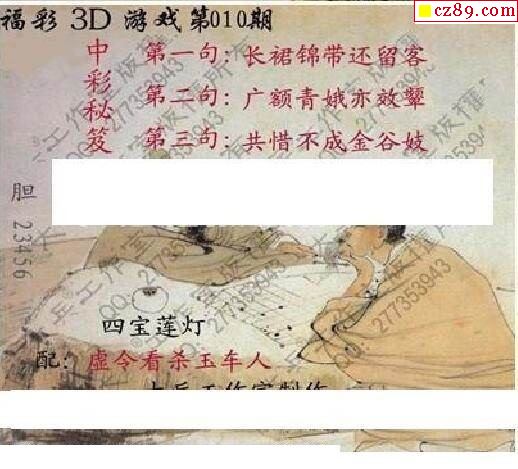 cz89.com
福彩3D游戏第010期
中彩秘笈
第一句：长裙锦带还留客
第二句：广额青娥亦效颦
第三句：共惜不成金谷妓
胆 23456
四宝莲灯
配：虚令看杀玉车人
兵工作室版权所有
QQ:277353943